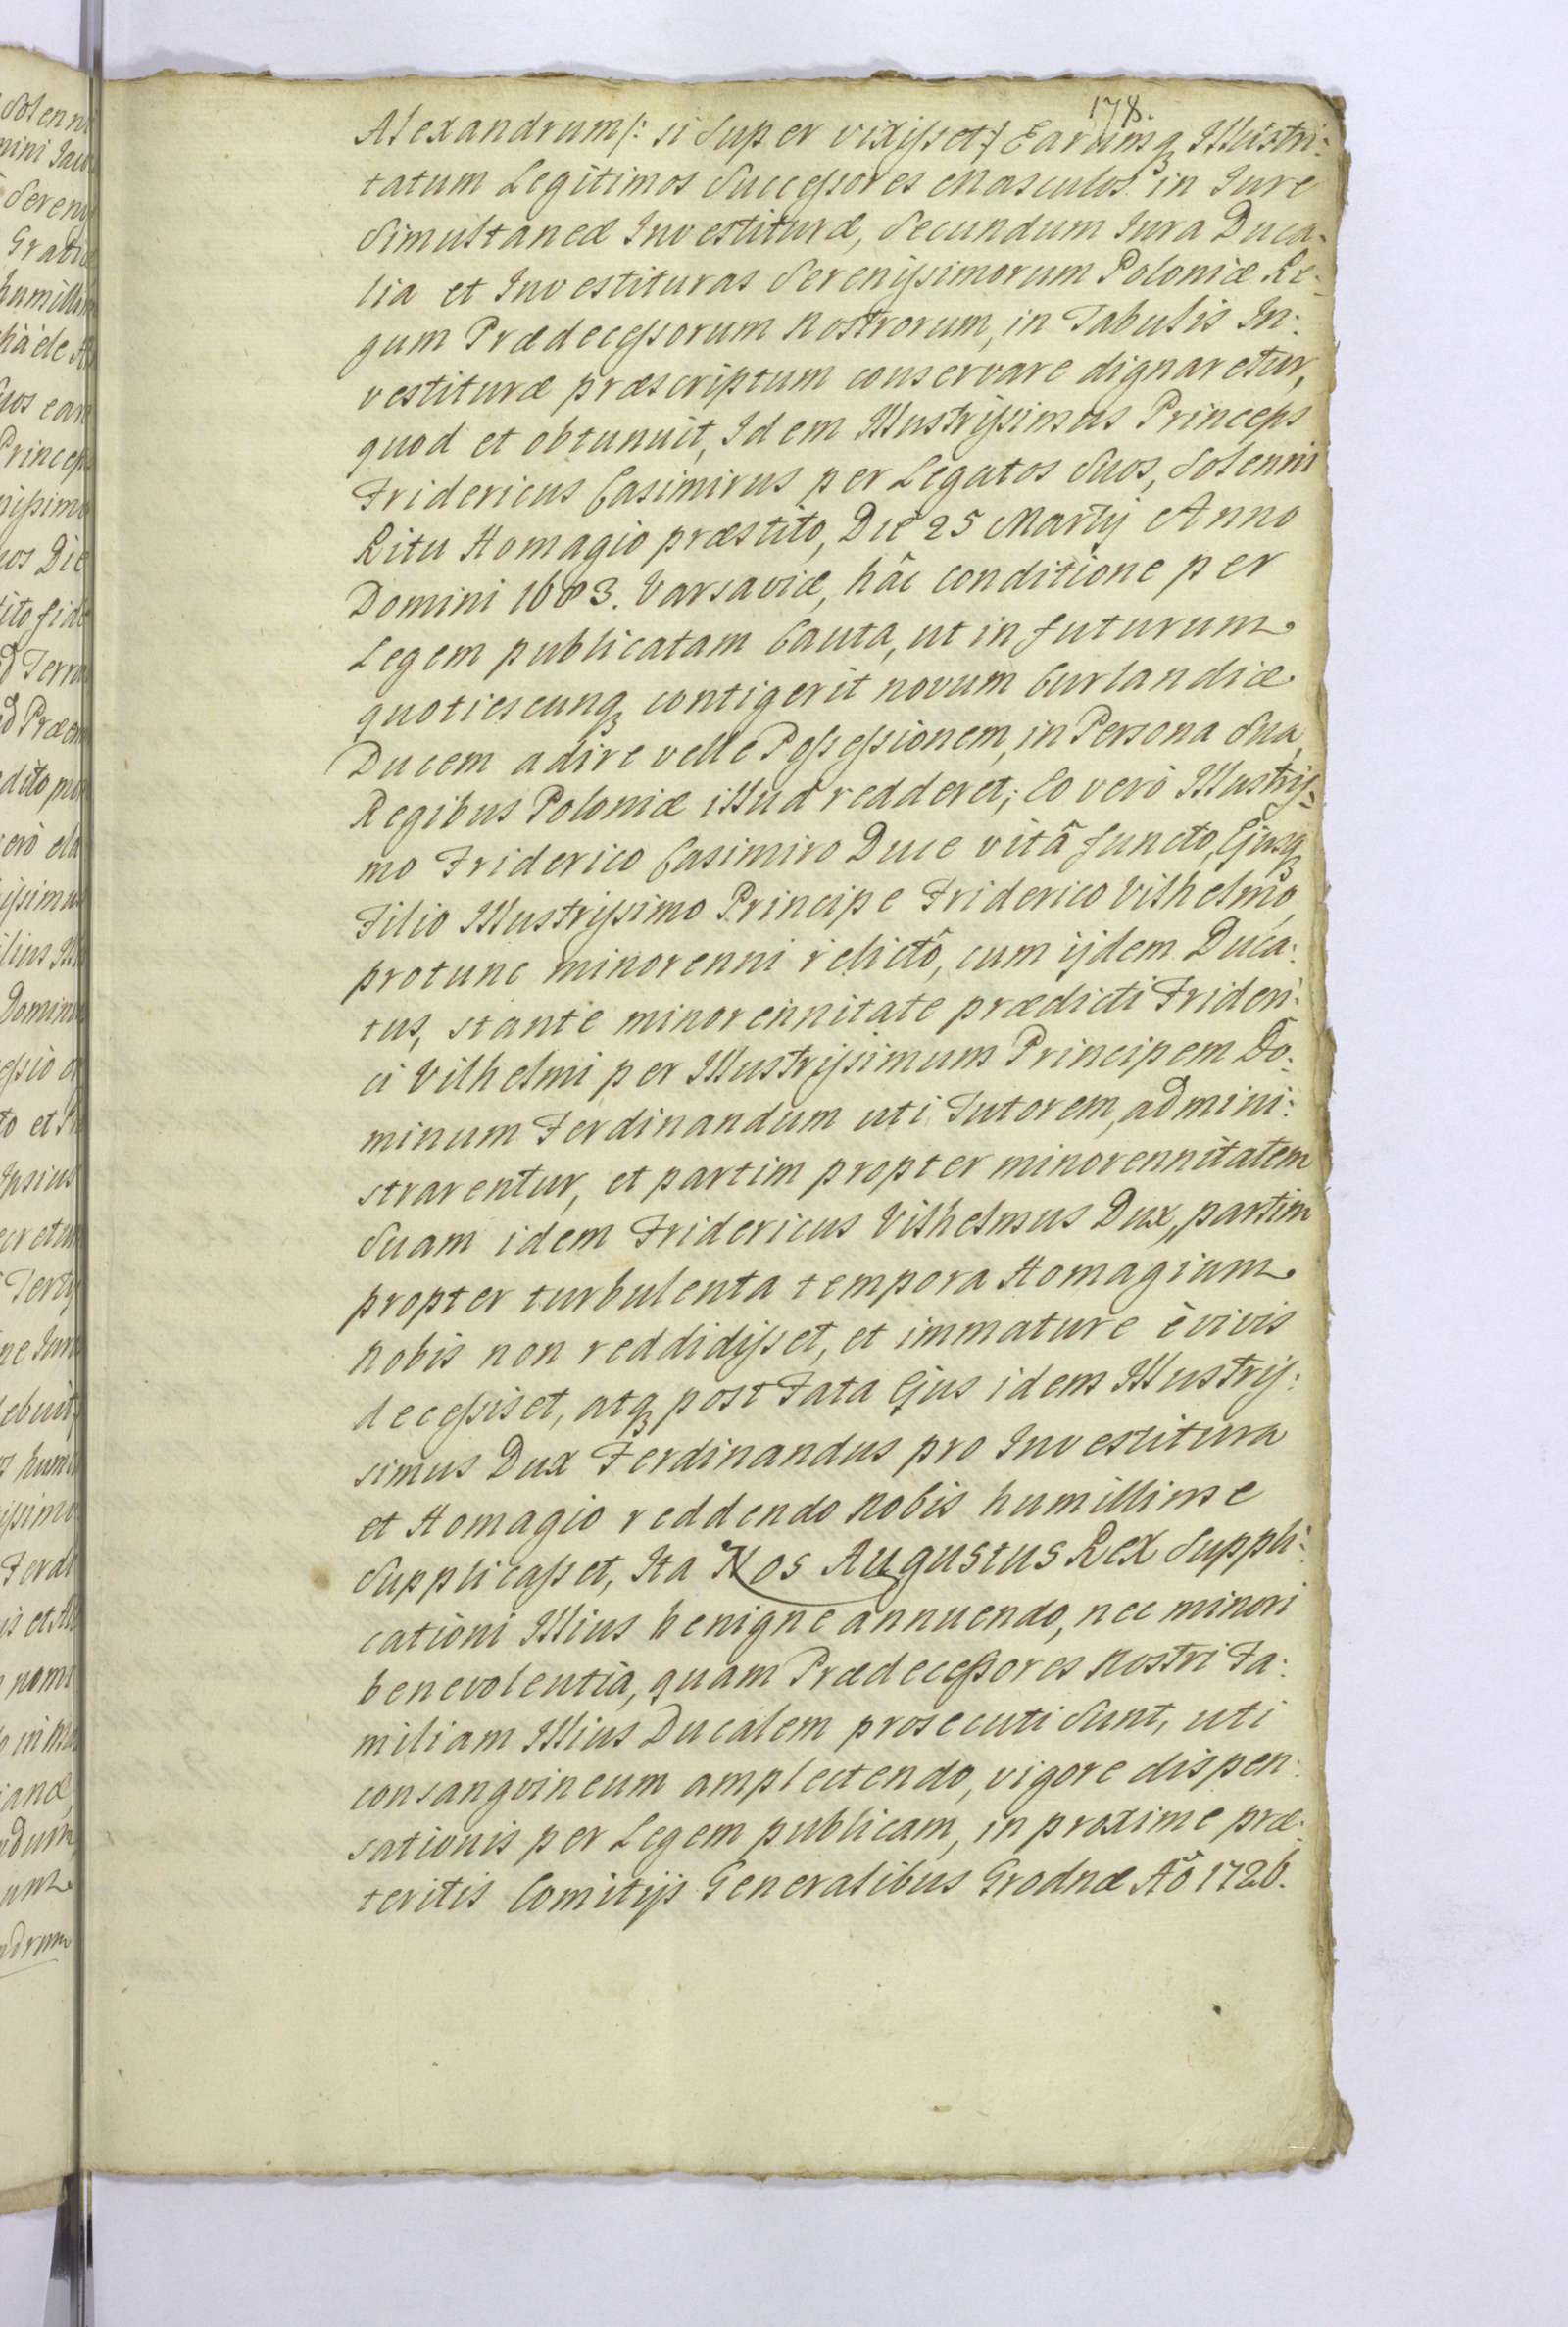 178.
Alexandrum /: si Supervixisset :/ Earumq Illustri:
tatum Legitimos Successores Masculos in Jure
Simultaneæ Investituræ, Secundum Jura Duca:
lia et Investituras Serenissimorum Poloniæ Re:
gum Prædecessorum Nostrorum, in Tabulis In:
vestituræ præscriptum conservare dignaretur,
quod et obtunuit, Idem Illustrissimus Princeps
Fridericus Casimirus per Legatos Suos, Solenni
Ritu Homagio præstito, Die 25 Martij Anno
Domini 1683. Varsaviæ, hâc conditione per
Legem publicatam Cauta, ut in futurum
quotiescunq contigerit novum Curlandiæ
Ducem adire velle Possessionem, in Persona Sua
Regibus Poloniæ illud redderet; Eo verò Illustriss:
mo Friderico Casimiro Duce vitâ functo, Ejusq
Filio Illustrissimo Principe Friderico Vilhelmo,
protunc minorenni relictô, cum ijdem Duca:
tus, stante minorennitate prædicti Frideri:
ci Vilhelmi per Illustrissimum Principem Do:
minum Ferdinandum uti Tutorem, admini:
strarentur, et partim propter minorennitatem
Suam idem Fridericus Vilhelmus Dux, partim
propter turbulenta tempora Homagium
Nobis non reddidisset, et immature è vivis
decessiset, atq post Fata Ejus idem Illustris:
simus Dux Ferdinandus pro Investitura
et Homagio reddendo Nobis humillime
Supplicasset, Ita Nos Augustus Rex Suppli:
cationi Illius benigne annuendo, nec minori
benevolentia, quam Prædecessores Nostri Fa:
miliam Illius Ducalem prosecuti Sunt, uti
consangvineum amplectendo, vigore dispen:
sationis per Legem publicam, in proxime præ:
teritis Comitijs Generalibus Grodnæ Aõ 1726.